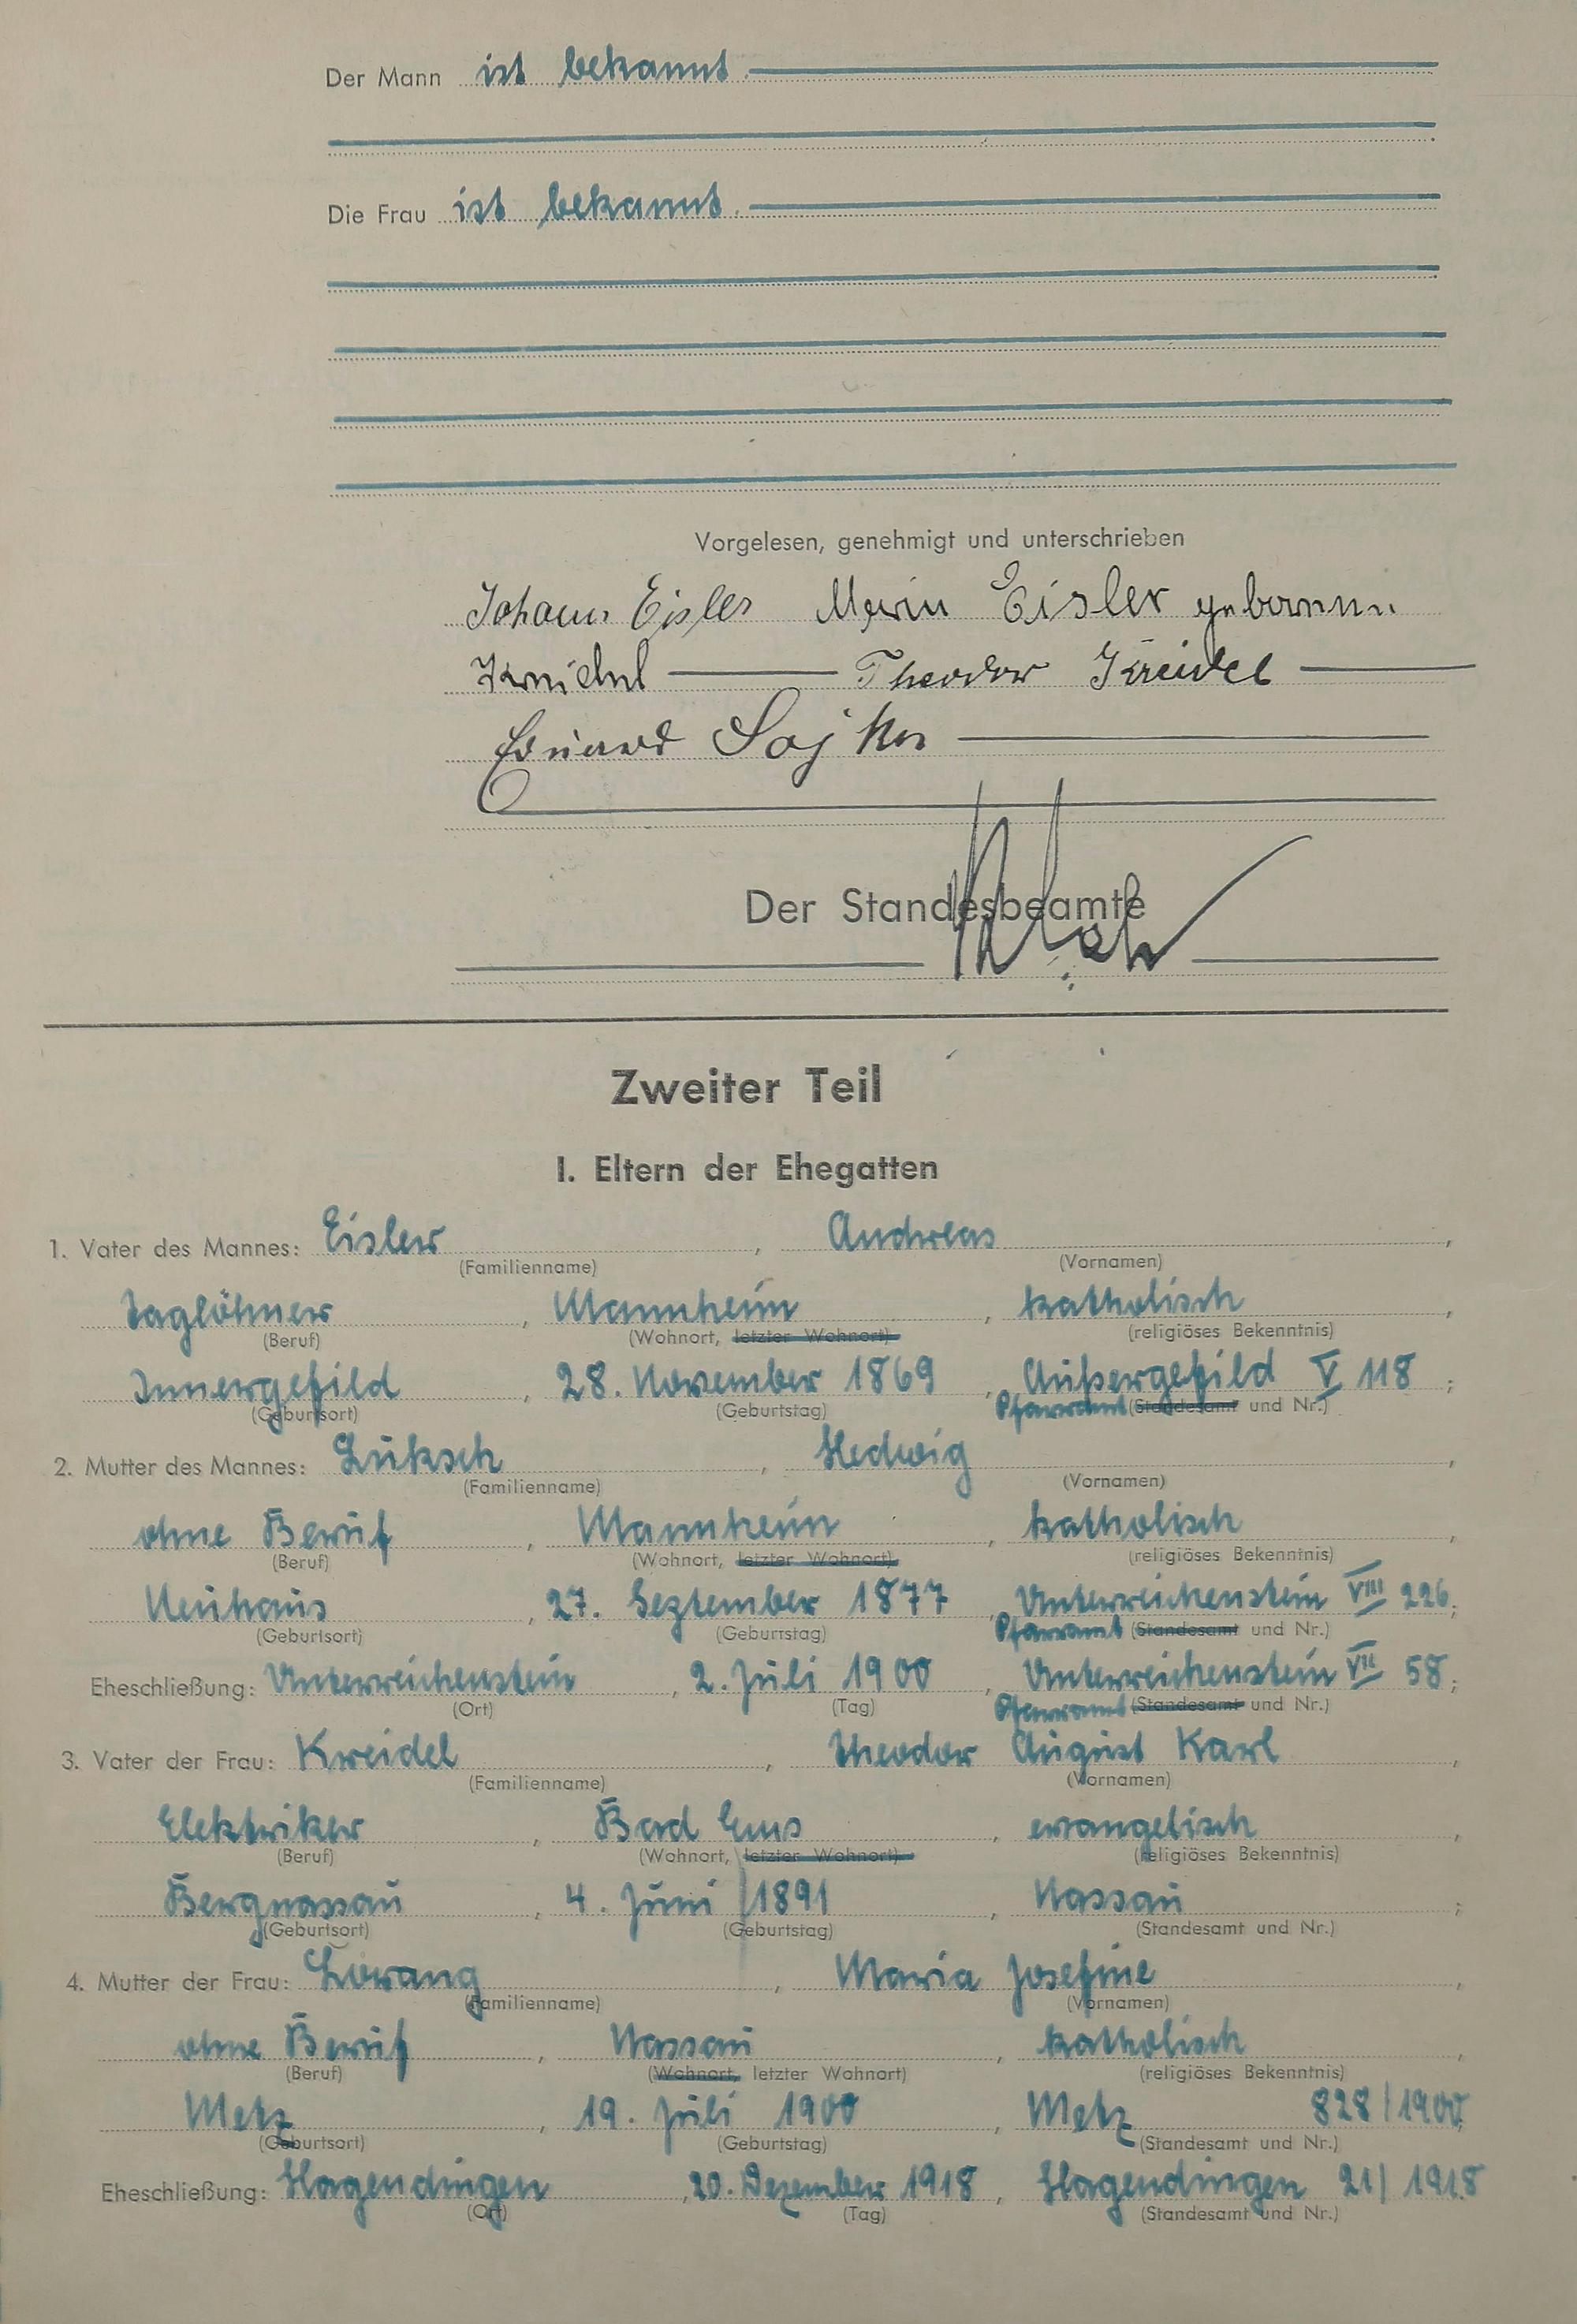 Der Mann ist bekannt.
Die Frau ist bekannt.
Vorgelesen, genehmigt und unterschrieben
Johann Eisler Maria Eisler geborene
Kreidel Theodor Kreidel
Eduard
Der Standesbeamte
Zweiter Teil
I. Eltern der Ehegatten
1. Vater des Mannes: Eisler, Andreas,
(Familienname) (Vornamen)
Taglöhner, Mannheim, katholisch,
(Beruf) (Wohnort, letzter Wohnort) (religiöses Bekenntnis)
Innergefild, 28. November 1869, Außergefild V 118;
(Geburtsort) (Geburtstag) Pfarramt (Standesamt und Nr.)
2. Mutter des Mannes: Luksch, Hedwig,
(Familienname) (Vornamen)
ohne Beruf, Mannheim, katholisch,
(Beruf) (Wohnort, letzter Wohnort) (religiöses Bekenntnis)
Neuhaus, 27. September 1877, Unterreichenstein VIII 226;
(Geburtsort) (Geburtstag) Pfarramt (Standesamt und Nr.)
Eheschließung: Unterreichenstein, 2. Juli 1900, Unterreichenstein VII 58;
(Ort) (Tag) Pfarramt (Standesamt und Nr.)
3. Vater der Frau: Kreidel, Theodor August Karl,
(Familienname) (Vornamen)
Elektriker, Bad Ems, evangelisch,
(Beruf) (Wohnort, letzter Wohnort) (religiöses Bekenntnis)
Bergnassau, 4. Juni 1891, Nassau;
(Geburtsort) (Geburtstag) (Standesamt und Nr.)
4. Mutter der Frau: Lorang, Maria Josefine,
(Familienname) (Vornamen)
ohne Beruf, Nassau, katholisch,
(Beruf) (Wohnort, letzter Wohnort) (religiöses Bekenntnis)
Metz, 19. Juli 1900, Metz 828/1900;
(Geburtsort) (Geburtstag) (Standesamt und Nr.)
Eheschließung: Hagendingen, 20. Dezember 1918, Hagendingen 21/1918
(Ort) (Tag) (Standesamt und Nr.)